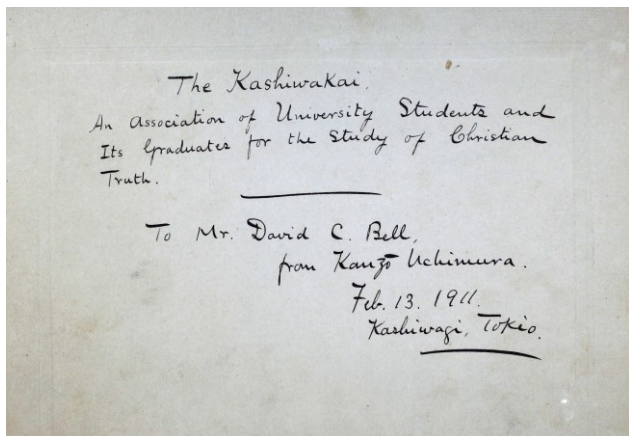 The Kashiwakai.
An Association of University Students and
Its Graduates for the Study of Christian
Truth.
To Mr. David C. Bell,
from Kanzō Uchimura.
Feb. 13. 1911.
Kashiwagi, Tokio.